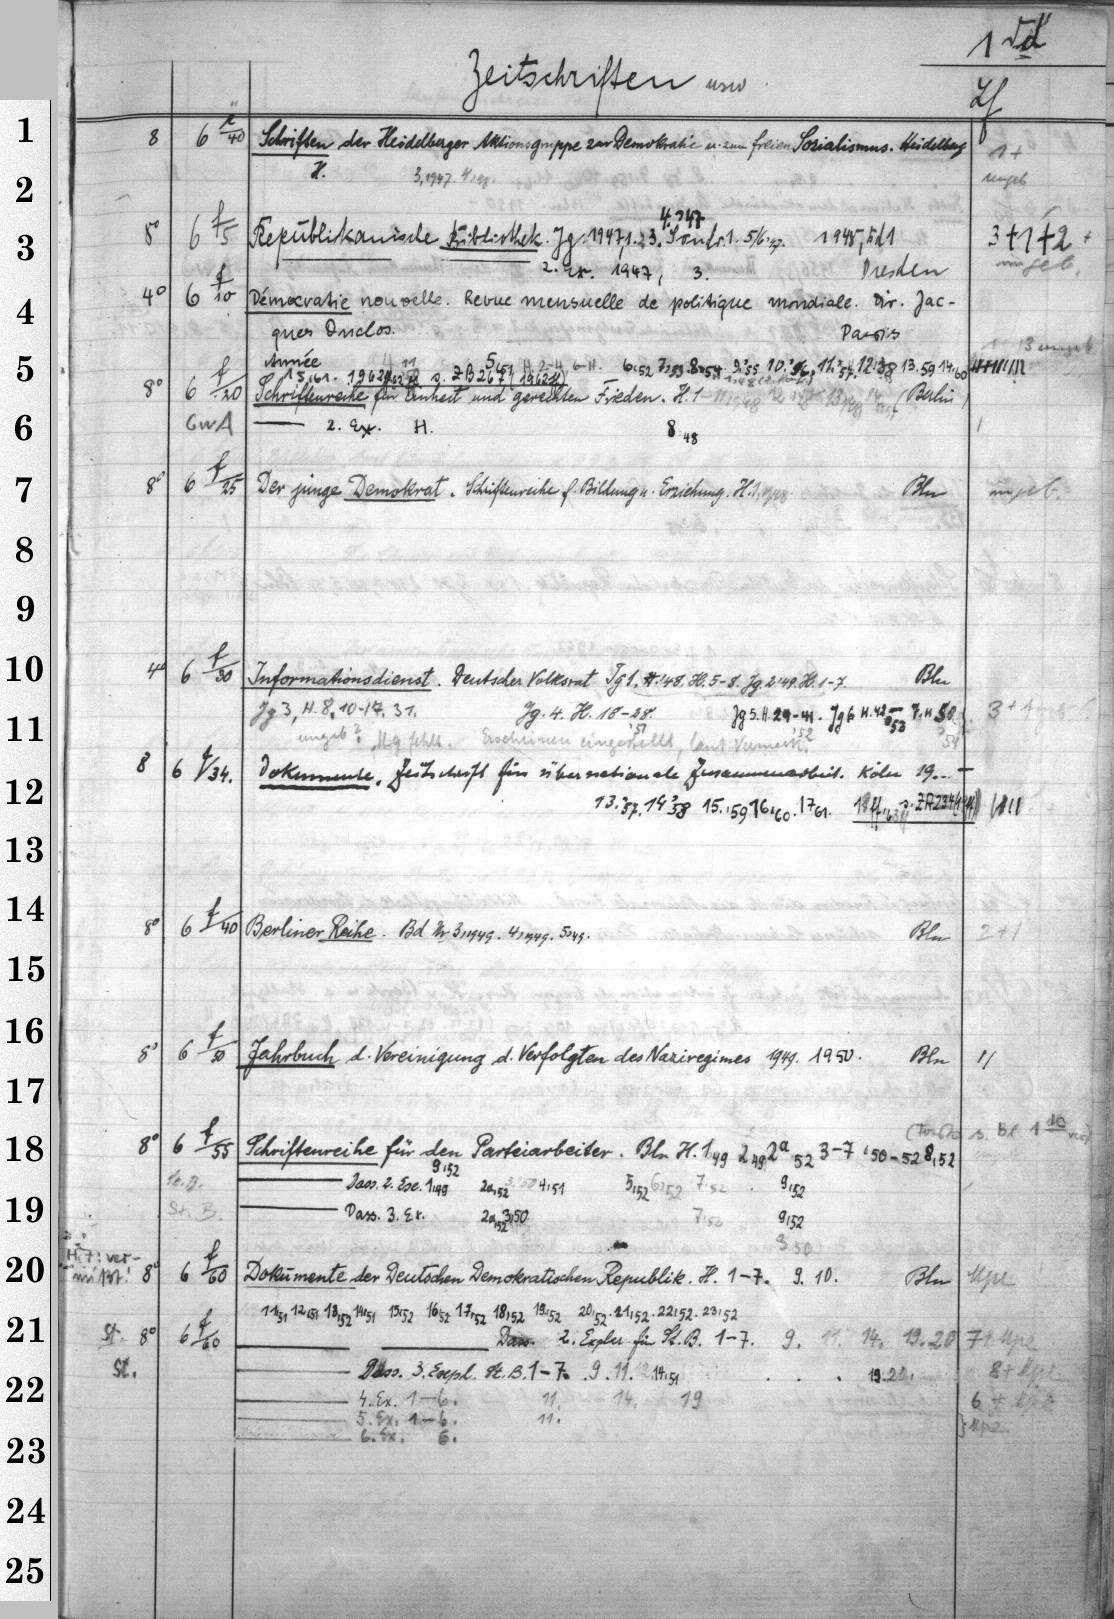 1
Zeitschriften usw.
Zf
1
8 6 40 Schriften der Heidelberger Aktionsgruppe zur Demokratie u. zum freien Sozialismus. Heidelberg 1+
2
H. 3,1947. ungeb
4.'47
3
8° 6 f/5 Republikanische Bibliothek. Jg. 1947 1. 3. 1. 5/6.'47. 1948, 1 3+1+2+
2. Ex. 1947, 3. Dresden ungeb.
4
4° 6 f/10 Démocratie nouvelle. Revue mensuelle de politique mondiale. Dir. Jac-
ques Duclos. Paris
5
Année 6,52 7,53 8,54 9,'55 10,'56, 11,'57, 12,'58 13.59 14,60
15,61. 1962 s. ZB 267 (1962 ff)
8° 6 f/20 Schriftenreihe für Einheit und gerechten Frieden. H. 1- (Berlin)
6
GWA 2. Ex. H. 8 48
7
8° 6 f/25 Der junge Demokrat. Schriftenreihe f. Bildung u. Erziehung. H. 1, Bln ungeb.
8
9
10
4° 6 f/30 Informationsdienst. Deutscher Volksrat Jg 1. '48. H. 5-8. Jg. 2 '49. H. 1-7. Bln
11
Jg 3, H. 8, 10-17, 31. Jg. 4. H. 18-28. '51 Jg 5. H. 29-41. '52 Jg 6 H. 42- '53 7. H 50 '54 3+
ungeb. fehlt. Erscheinen eingestellt, laut Vermerk.
8 6 f/34. Dokumente. Zeitschrift für übernationale Zusammenarbeit. Köln 19..-
12
13.'57. 14'58 15.'59 16,60. 17 61. 18 ff s. ZA 234
13
14
8° 6 f/40 Berliner Reihe. Bd Nr 3,1949. 4,1949. 5,49. Bln 2+1
15
16
8° 6 f/50 Jahrbuch d. Vereinigung d. Verfolgten des Naziregimes 1949. 1950. Bln
17
18
8° 6 f/55 Schriftenreihe für den Parteiarbeiter. Bln H. 1,49 2,49 2a 52 3-7 '50-52 8,52
9,52
Dass. 2. Exe. 1,49 2a,52 4,51 5,52 6,52 7,52 9,52
19
St. B. Dass. 3. Ex. 2a,52 3,50 7,52 9,52
3 50
H. 7: ver-
20
8° 6 f/60 Dokumente der Deutschen Demokratischen Republik. H. 1-7. 9. 10. Bln Mpe
11,51 12,51 13,52 14,51 15,52 16,52 17,52 18,52 19,52 20,52. 21,52. 22,52. 23,52
21
St. 8° 6 f/60 Dass. 2. Explar für St. B. 1-7. 9. 11. 14. 19. 20 7+ Mpe
St. Dass. 3. Exepl. St. B. 1-7. 9. 11. 12. 14,51 19. 20. 8+ Mpe
22
4. Ex. 1-6. 11. 14. 19 6 + Mpe
5. Ex. 1-6. 11. Mpe
23
6. Ex. 6.
24
25